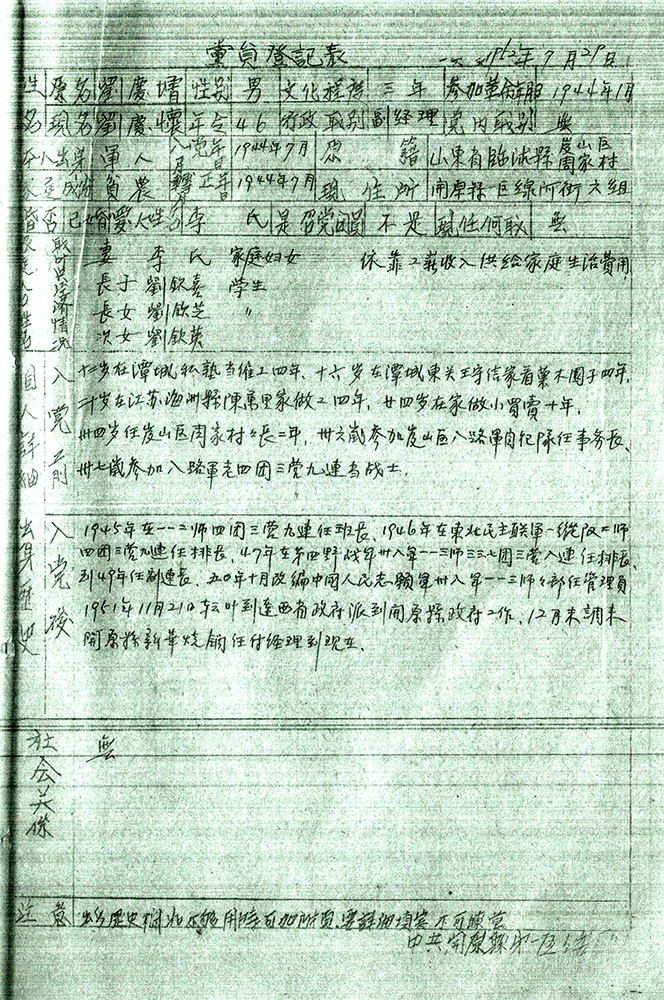 黨員登記表 一九五二年7月29日
姓 原名 劉慶堉 性別 男 文化程度 三年 參加革命年月 1944年1月
名 現名 劉慶懷 年令 46 行政職别 副經理 党内职别 無
本人出身 軍人 入党年月 1944年7月 原籍 山東省臨沭縣岌山区周家村
家庭成份 貧農 轉正年月 1944年7月 現住所 開原縣一区綠所街六組
婚否 已婚 愛人姓名 李氏 是否党团員 不是 現任何职 無
妻 李氏 家庭妇女 依靠工薪收入供給家庭生活費用
長子 劉欽喜 学生
長女 劉欽芝 〃
次女 劉欽英
個人詳細出身歷史
入党前
十二岁在潭城私熟当雇工四年、十六岁在潭城東关王守信家看菓木園子四年,
二十岁在江苏海州縣陳萬里家做工四年,廿四岁在家做小買賣十年,
卅四岁任岌山区周家村々長二年,卅六歲參加岌山区八路軍自纪隊任事务長、
卅七歲參加八路軍老四团三营九連当战士.
入党後
1945年在一一二师四团三营九連任班長、1946年在東北民主联軍一縱队二师
四团三营九連任排長、47年在第四野战军卅八军一一三师三三七团三营八連任排長、
到49年任副連長、五0年十月改編中國人民志願軍卅八軍一一三师々部任管理員
1951年11月21日轉叶到遼西省政府派到開原縣政府工作、12月末調来
開原縣新華烧鍋任付經理到现在.
社会关係 無
注意 出身歷史栏如不够用時可加附頁,要詳細填寫不可
中共開原縣第一区